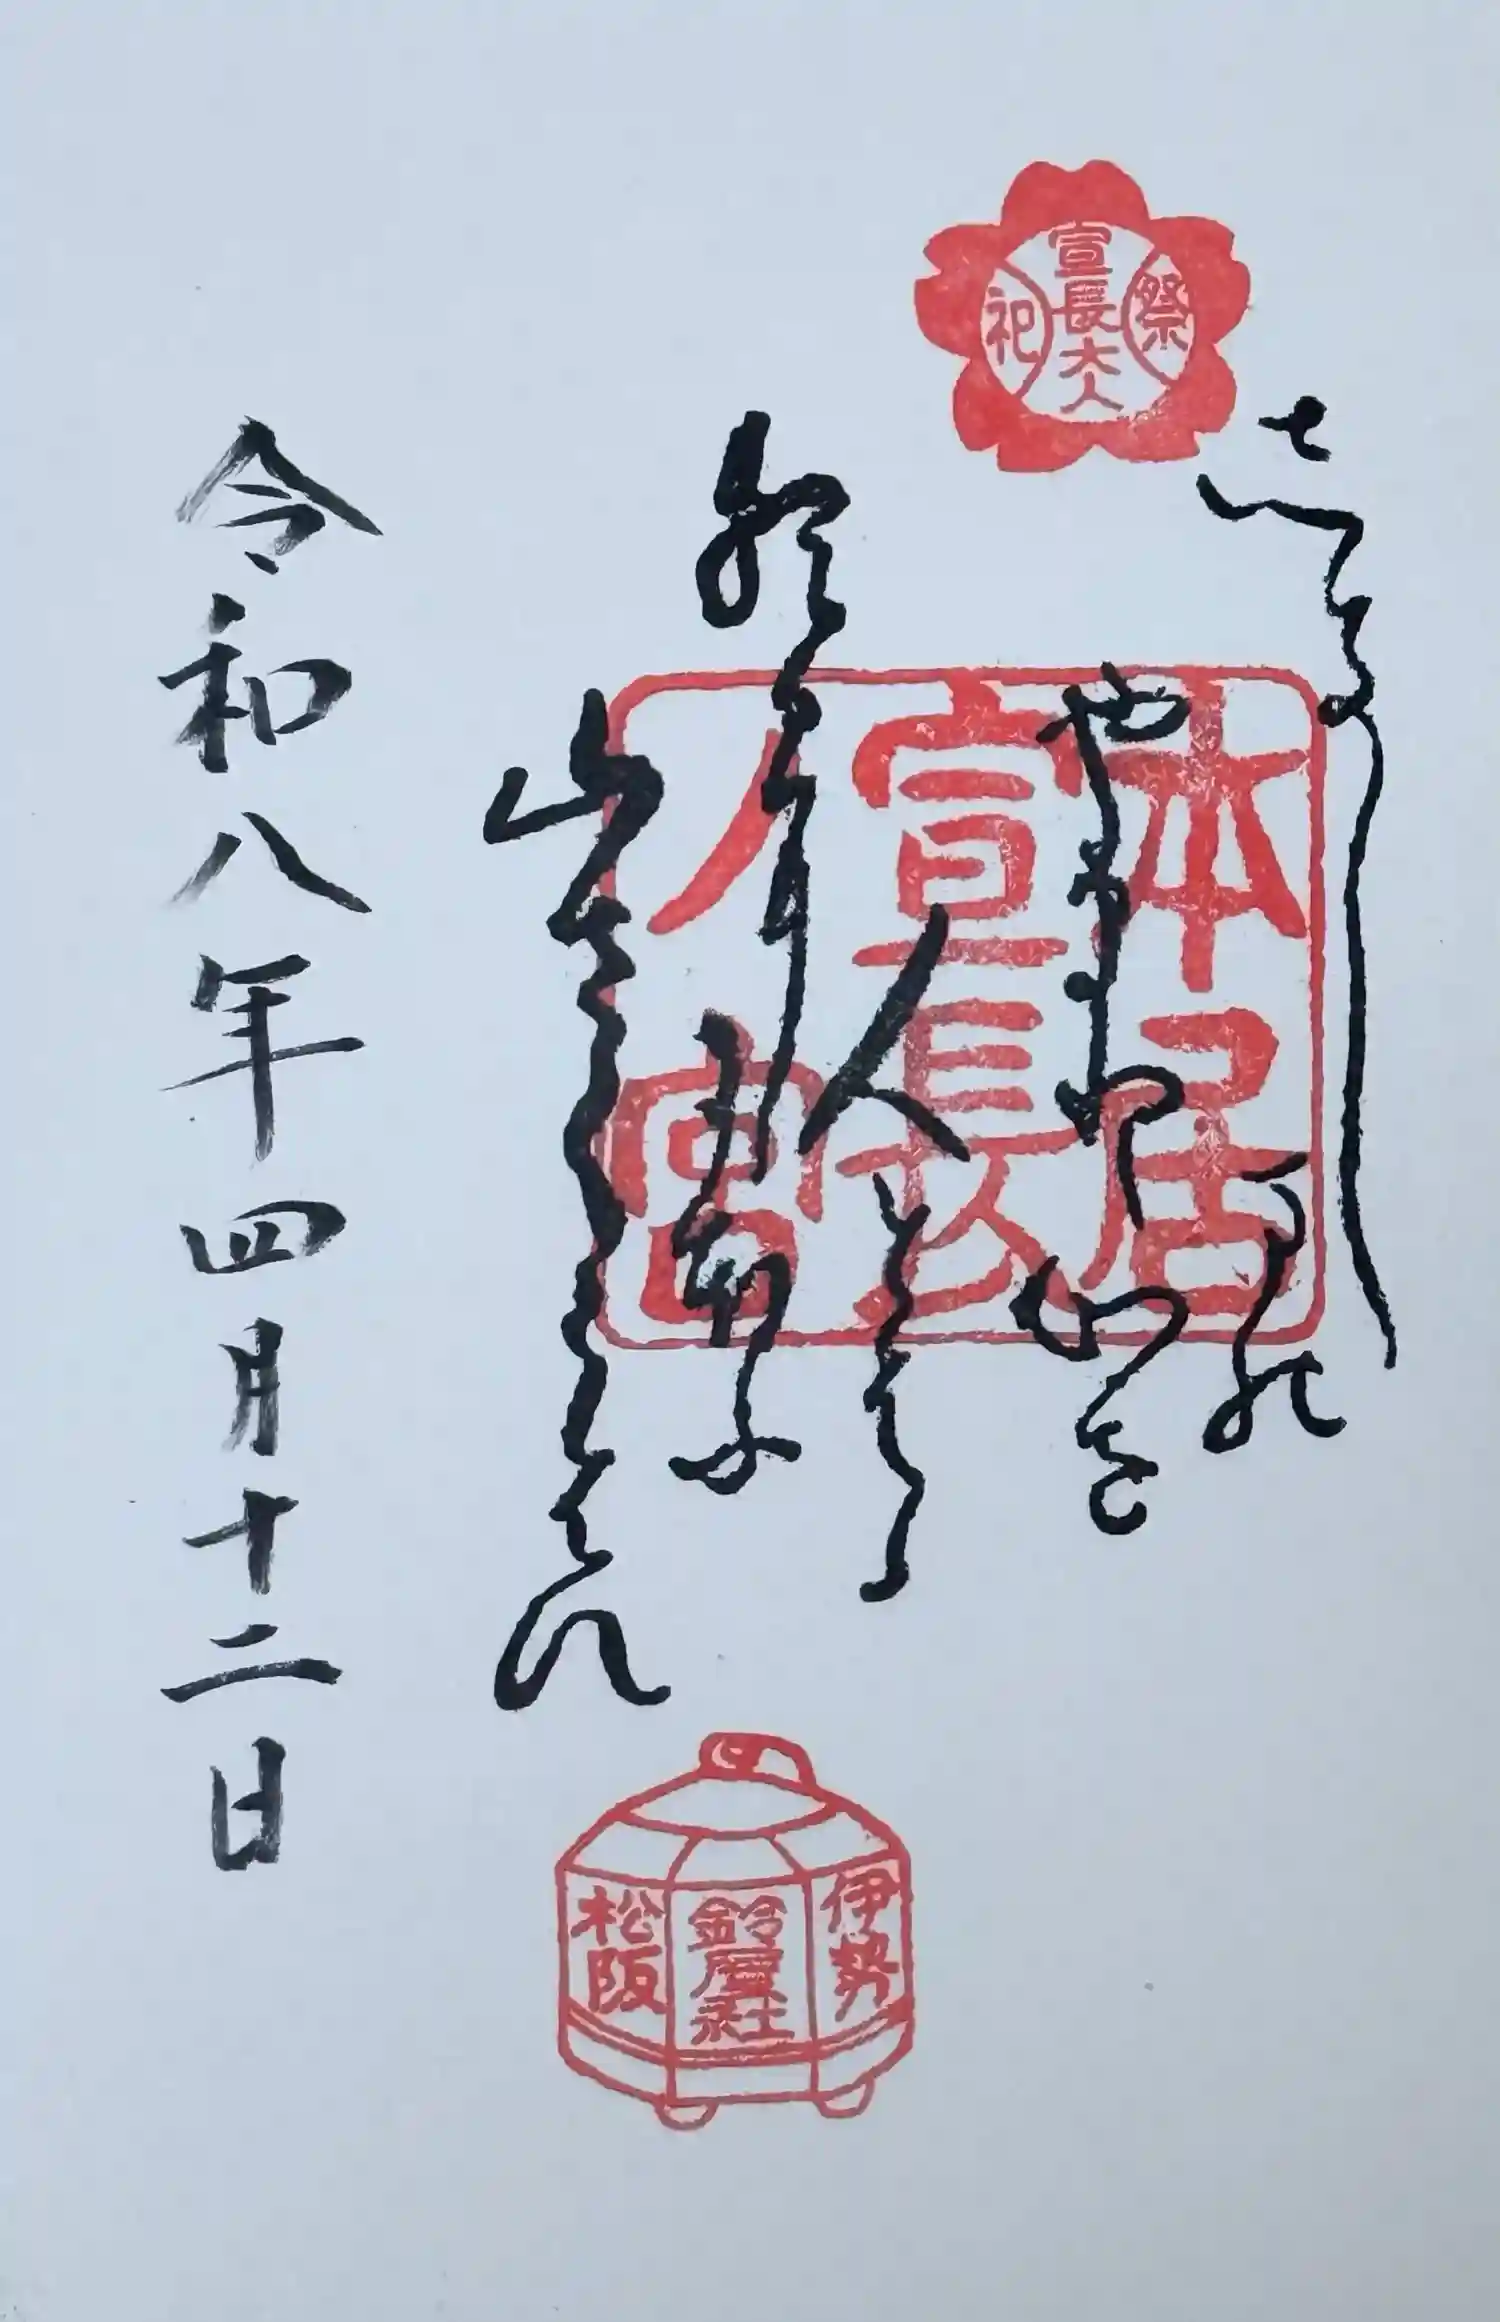 宣長大人
祭祀
しきしまの
やまと心を
人とはゝ
朝日ににほふ
山さくら花
本居
宣長
ノ宮
令和八年四月十二日
伊勢
鈴屋社
松阪